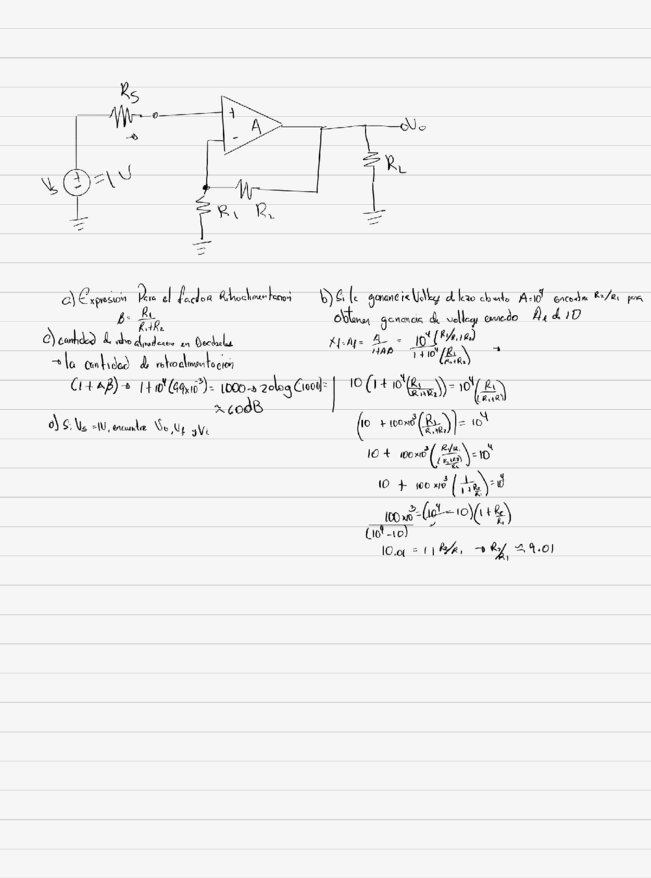 Rs
+
A
-
Vo
Vs
=1V
RL
R1 R2
a) Expresión Para el factor Retroalimentacion
B = R1 / R1+R2
c) cantidad de retroalimentacion en Decibeles
→ la cantidad de retroalimentación
(1 + Aβ) → 1+10⁴(99x10⁻³) = 1000 → 20log(1000) =
≈ 60dB
d) Si Vs = 1V, encuentre Vo, Vf y Vi
b) Si la ganancia Voltaje d lazo abierto A=10⁴ encontrar R2/R1 para
obtener ganancia de voltaje cerrado Af d 10
Xf = Af = A / 1+AB = 10⁴ (R1/R1+R2) / 1+10⁴ (R1 / R1+R2) →
10 (1 + 10⁴ (R1 / R1+R2)) = 10⁴ (R1 / (R1+R2))
(10 + 100x10³ (R1 / R1+R2)) = 10⁴
10 + 100x10³ (R1/R1 / (R1+R2)/R1) = 10⁴
10 + 100x10³ (1 / 1+R2/R1) = 10⁴
100x10³ / (10⁴-10) = (10⁴-10)(1+R2/R1)
10.01 = 1+R2/R1 → R2/R1 ≈ 9.01